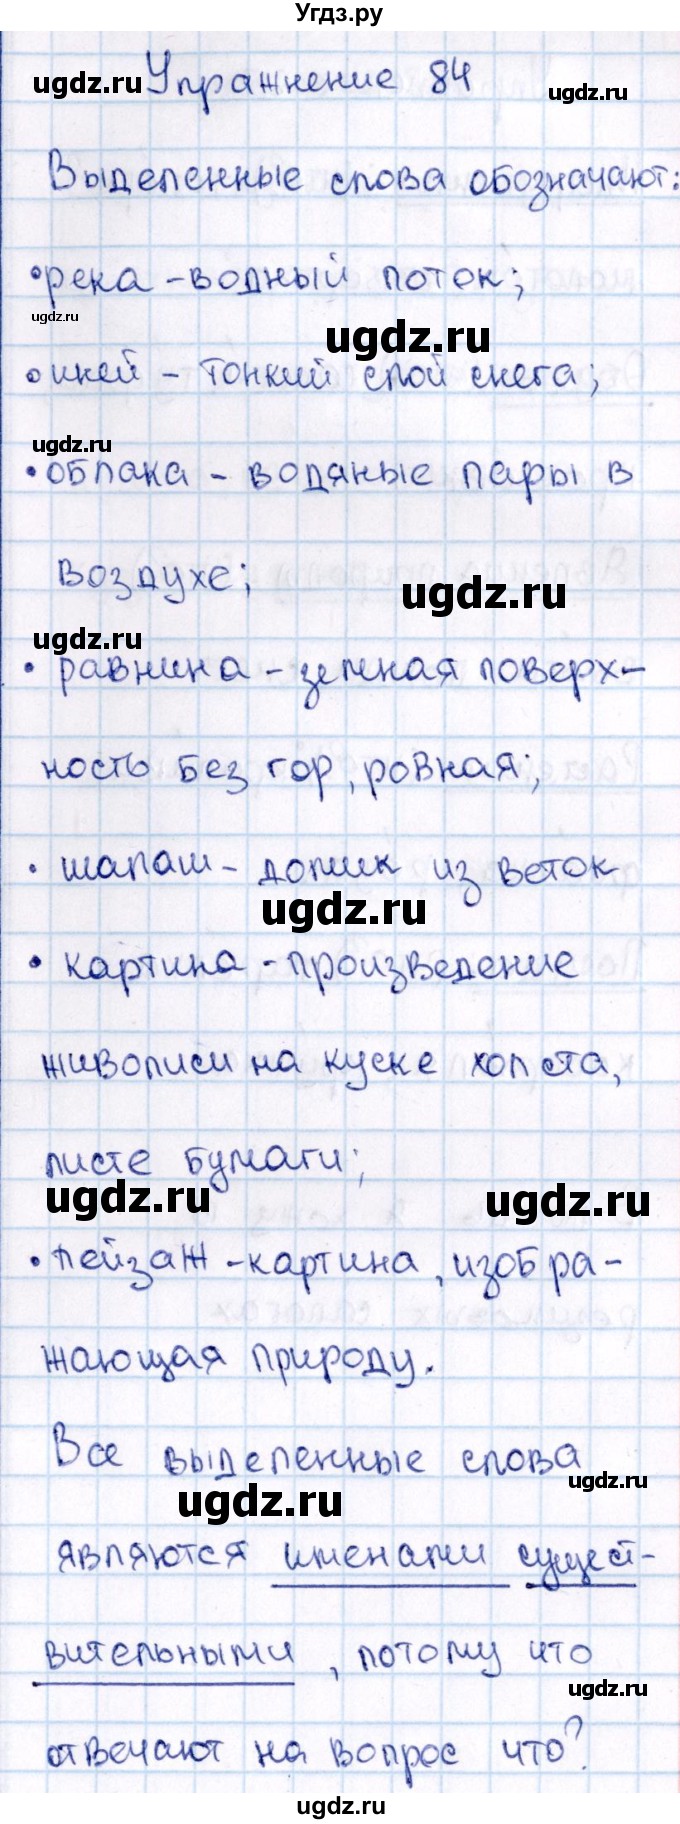 Угдз.ру
ugdz.ru Упражнение 84 ugdz.ru
Выделенные слова обозначают:
•река - водный поток;
ugdz.ru ugdz.ru
•иней - тонкий слой снега;
ugdz.ru
•облака - водяные пары в
воздухе; ugdz.ru
ugdz.ru
•равнина - земная поверх-
ность без гор, ровная;
•шалаш - домик из веток
ugdz.ru
•картина - произведение
живописи на куске холста,
листе бумаги;
ugdz.ru ugdz.ru
•пейзаж - картина, изобра-
жающая природу.
Все выделенные слова
ugdz.ru ugdz.ru
являются именами сущест-
вительными, потому что
ugdz.ru
отвечают на вопрос что?
ugdz.ru